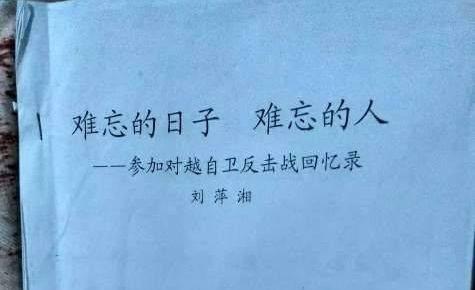 难忘的日子 难忘的人
——参加对越自卫反击战回忆录
刘萍湘